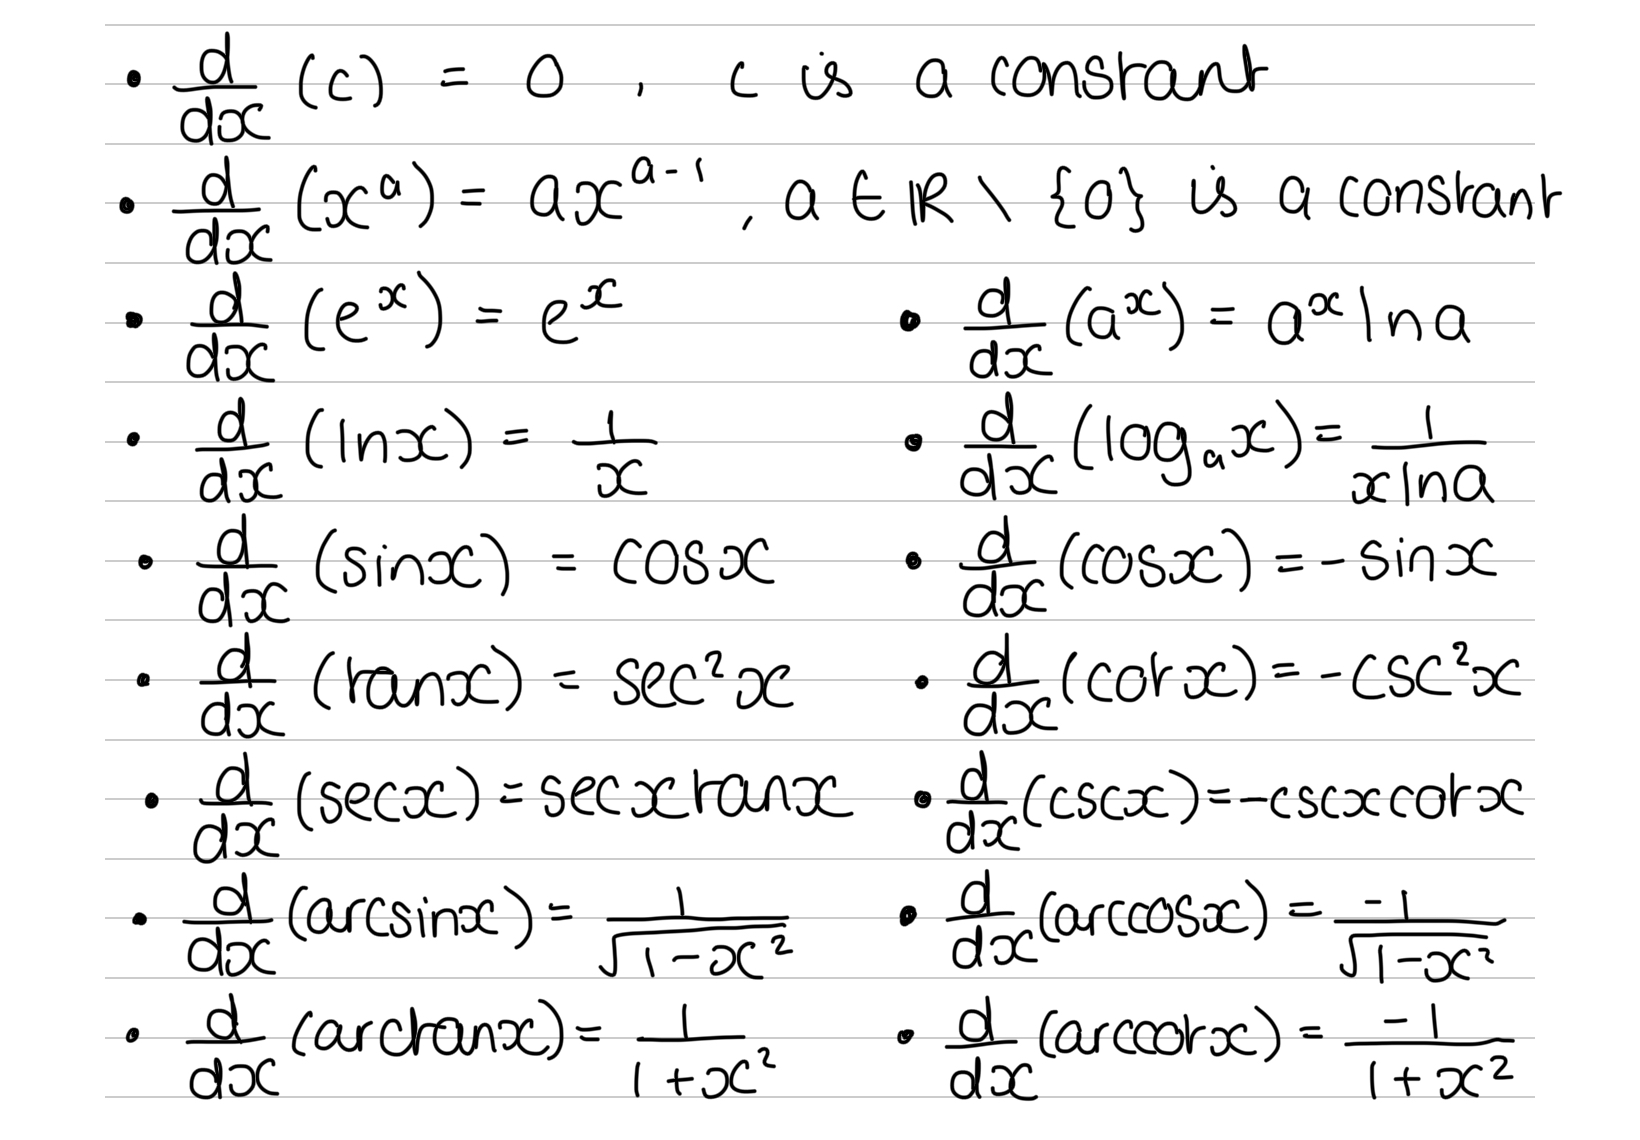 • d/dx (c) = 0 , c is a constant
• d/dx (x^a) = ax^(a-1) , a ∈ ℝ \ {0} is a constant
• d/dx (e^x) = e^x • d/dx (a^x) = a^x ln a
• d/dx (lnx) = 1/x • d/dx (log_a x) = 1/(x ln a)
• d/dx (sinx) = cosx • d/dx (cosx) = -sinx
• d/dx (tanx) = sec²x • d/dx (cotx) = -csc²x
• d/dx (secx) = secxtanx • d/dx (cscx) = -cscxcotx
• d/dx (arcsinx) = 1/√(1-x²) • d/dx (arccosx) = -1/√(1-x²)
• d/dx (arctanx) = 1/(1+x²) • d/dx (arccotx) = -1/(1+x²)